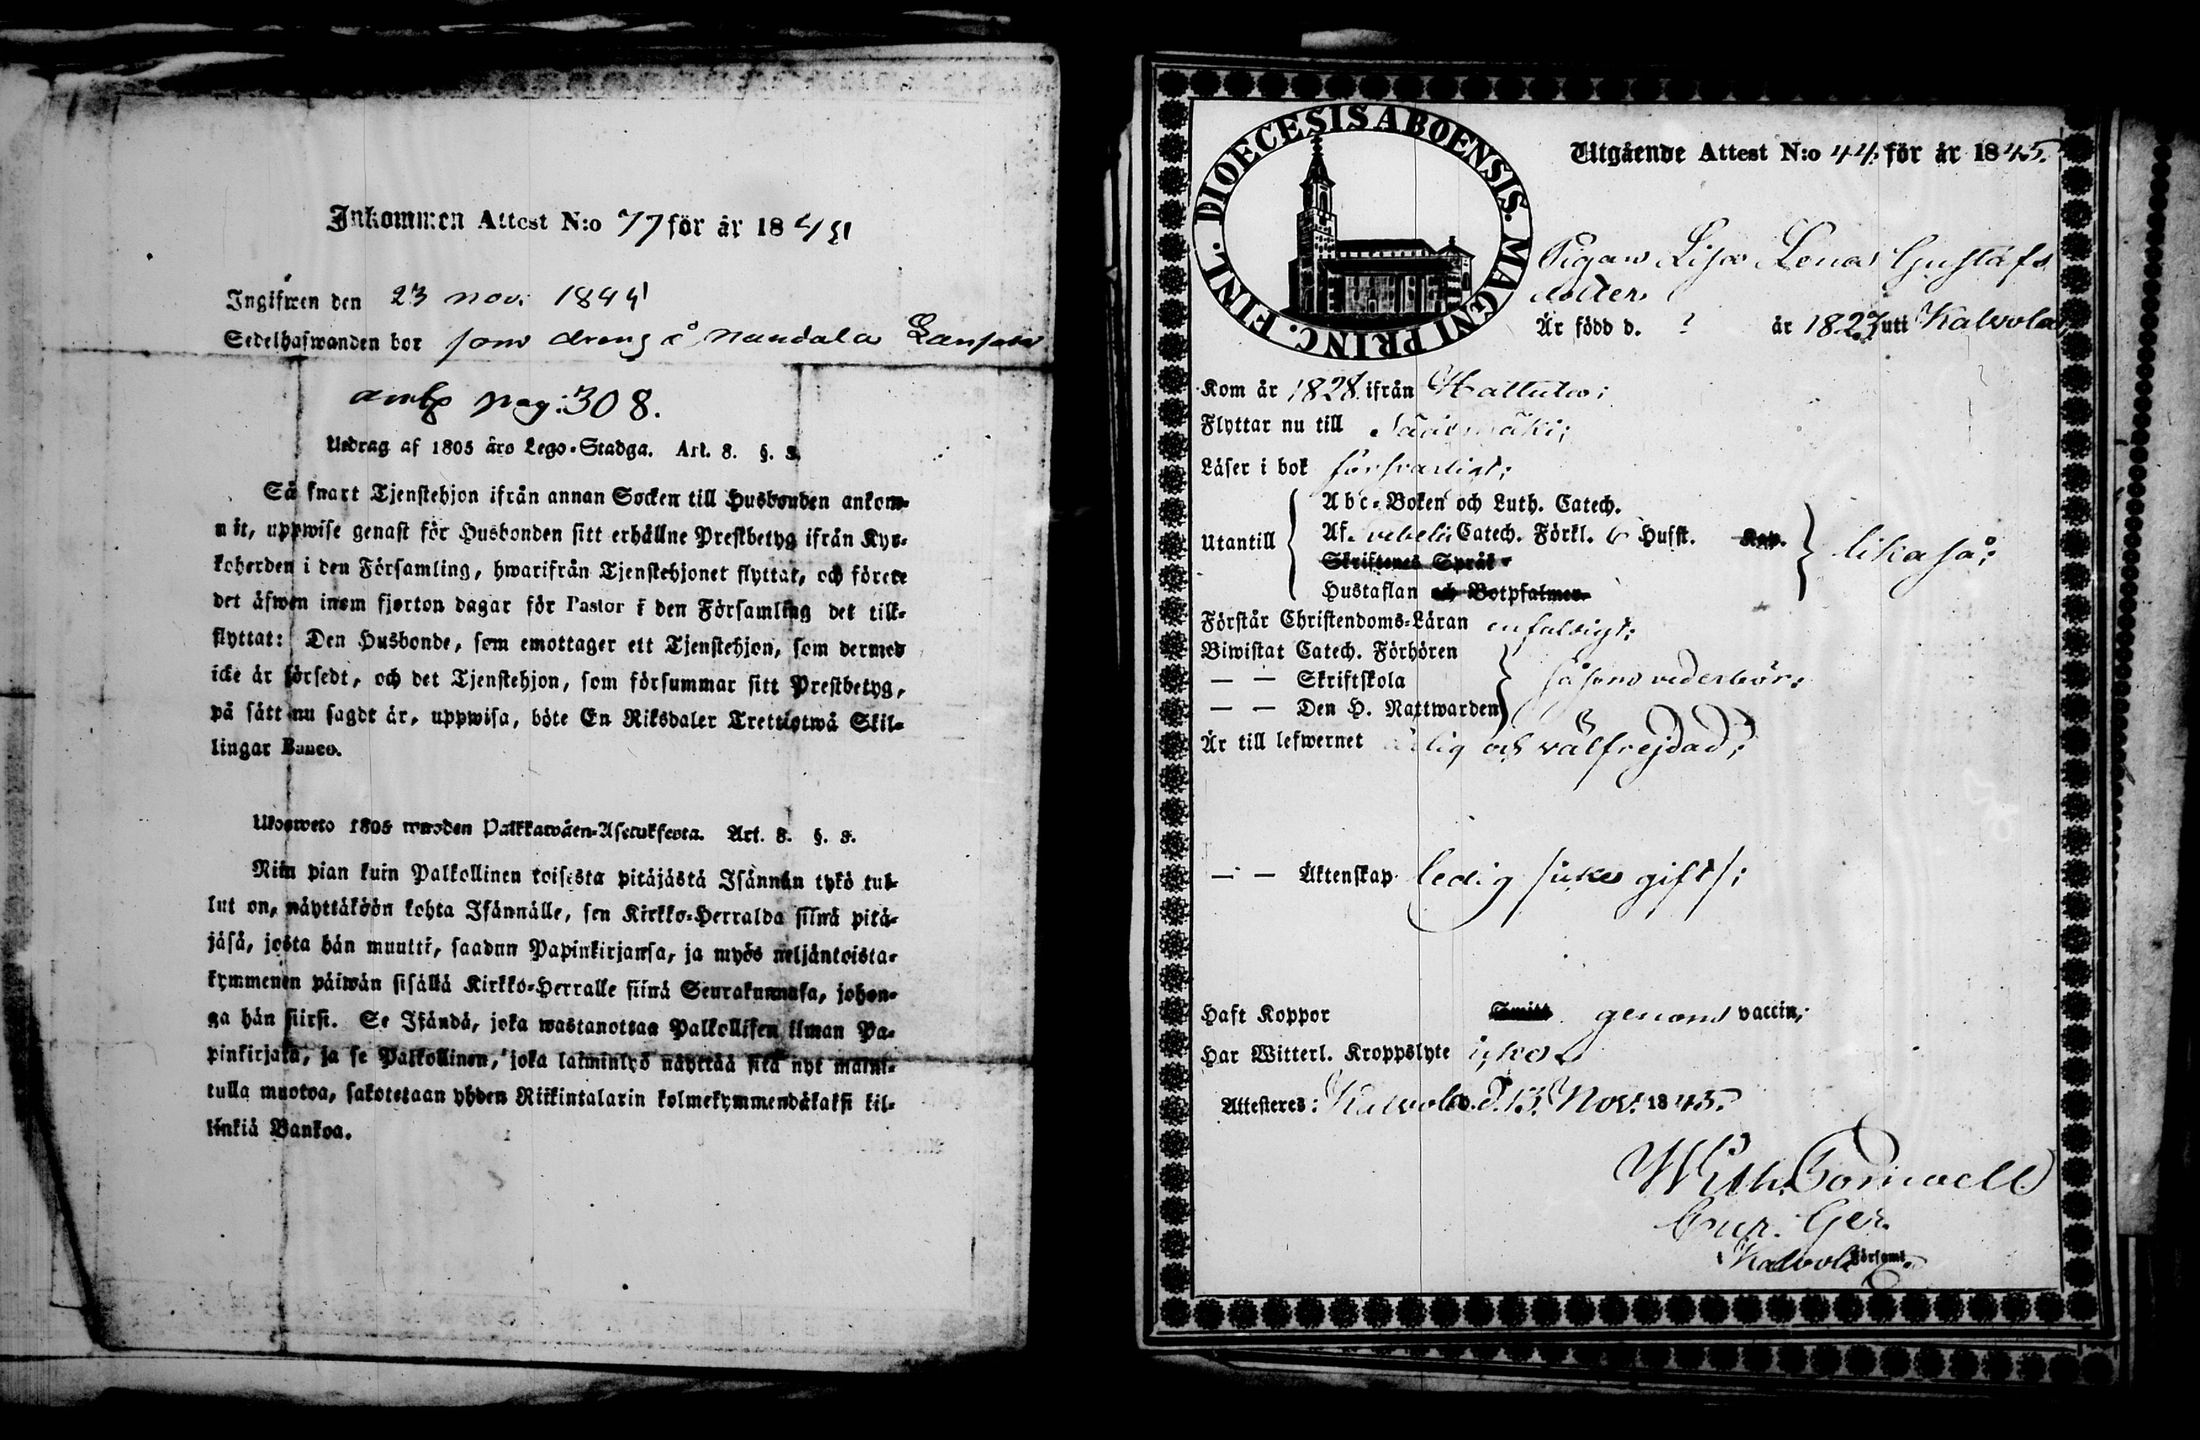 Inkommen Attest N:o 77 för år 184
Ingifwen den 23 nov. 184
Sedelhafwanden bor som dreng å
pag: 308.
Utdrag af 1805 års Lego-Stadga. Art. 8. §. 3.
Så snart Tjenstehjon ifrån annan Socken till Husbonden ankom-
mit, uppwise genast för Husbonden sitt erhållne Prestbetyg ifrån Kyr-
koherden i den Församling, hwarifrån Tjenstehjonet flyttat, och förete
det äfwen inom fjorton dagar för Pastor i den Församling det till-
flyttat: Den Husbonde, som emottager ett Tjenstehjon, som dermed
icke är försedt, och det Tjenstehjon, som försummar sitt Prestbetyg,
på sätt nu sagdt är, uppwisa, böte En Riksdaler Trettiotwå Skil-
lingar Banco.
Ulosweto 1805 wuoden Palkkawäen-Asetuksesta. Art. 8. §. 3.
Niin pian kuin Palkollinen toisesta pitäjästä Isännän tykö tul-
lut on, näyttäköön kohta Isännälle, sen Kirkko-Herralda siinä pitä-
jäsä, josta hän muutti, saadun Papinkirjansa, ja myös neljäntoista-
kymmenen päiwän sisällä Kirkko-Herralle siinä Seurakunnasa, johon-
ga hän siirsi. Se Isändä, joka wastanottaa Palkollisen ilman Pa-
pinkirjata, ja se Palkollinen, joka laiminlyö näyttää sitä nyt maini-
tulla muotoa, sakotetaan yhden Riikintalarin kolmekymmendäkaksi kil-
linkiä Bankoa.
DIOECESIS ABOENSIS. MAGNI PRINC. FINL.
Utgående Attest N:o 44. för år 1845.
Pigan Lisa Lena Gustafs
dotter
Är född d. ? år 1823 uti Kalvola
Kom år 1828 ifrån Hattula;
Flyttar nu till Sääksmäki;
Läser i bok försvarligt;
Utantill
Abc-Boken och Luth. Catech.
Af. Catech. Förkl. Husst. Kap.
Skriftenes Språk
Hustaflan och Botpsalmer.
likaså;
Förstår Christendoms-Läran enfaldigt;
Biwistat Catech. Förhören
— — Skriftskola
— — Den H. Nattwarden
såsom vederbör;
Är till lefwernet ärlig och välfrejdad;
— — Äktenskap ledig /icke gift/;
Haft Koppor Smitt. genom vaccin;
Har Witterl. Kroppslyte icke.
Attesteres: Kalvola d. 13. Nov. 1845.
Wilh.
Cur. Ger.
Kalvola Församl.